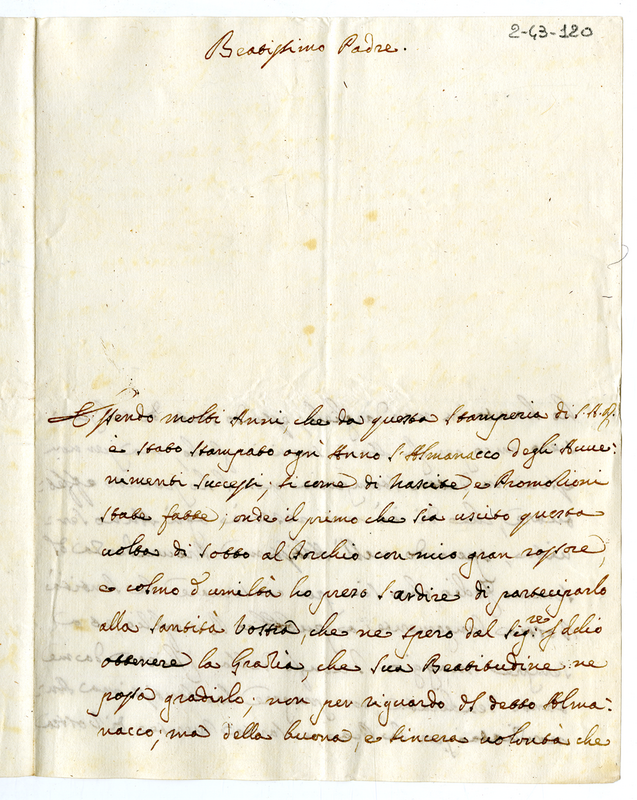 2-43-120
Beatissimo Padre.
Essendo molti Anni che da questa Stamperia di S. A. R.
è stato stampato ogni Anno l'Almanacco degli Avve:
nimenti successi, si come di Nascite, e Promozioni
state fatte; onde il primo che sia uscito questa
volta di sotto al Torchio con mio gran rossore,
e colmo d'umiltà ho preso l'ardire di parteciparlo
alla Santità Vostra, che ne spero dal Sig:re Iddio
ottenere la Grazia, che Sua Beatitudine ne
possa gradirlo; non per riguardo del detto Alma:
nacco; ma della buona, e sincera volontà che